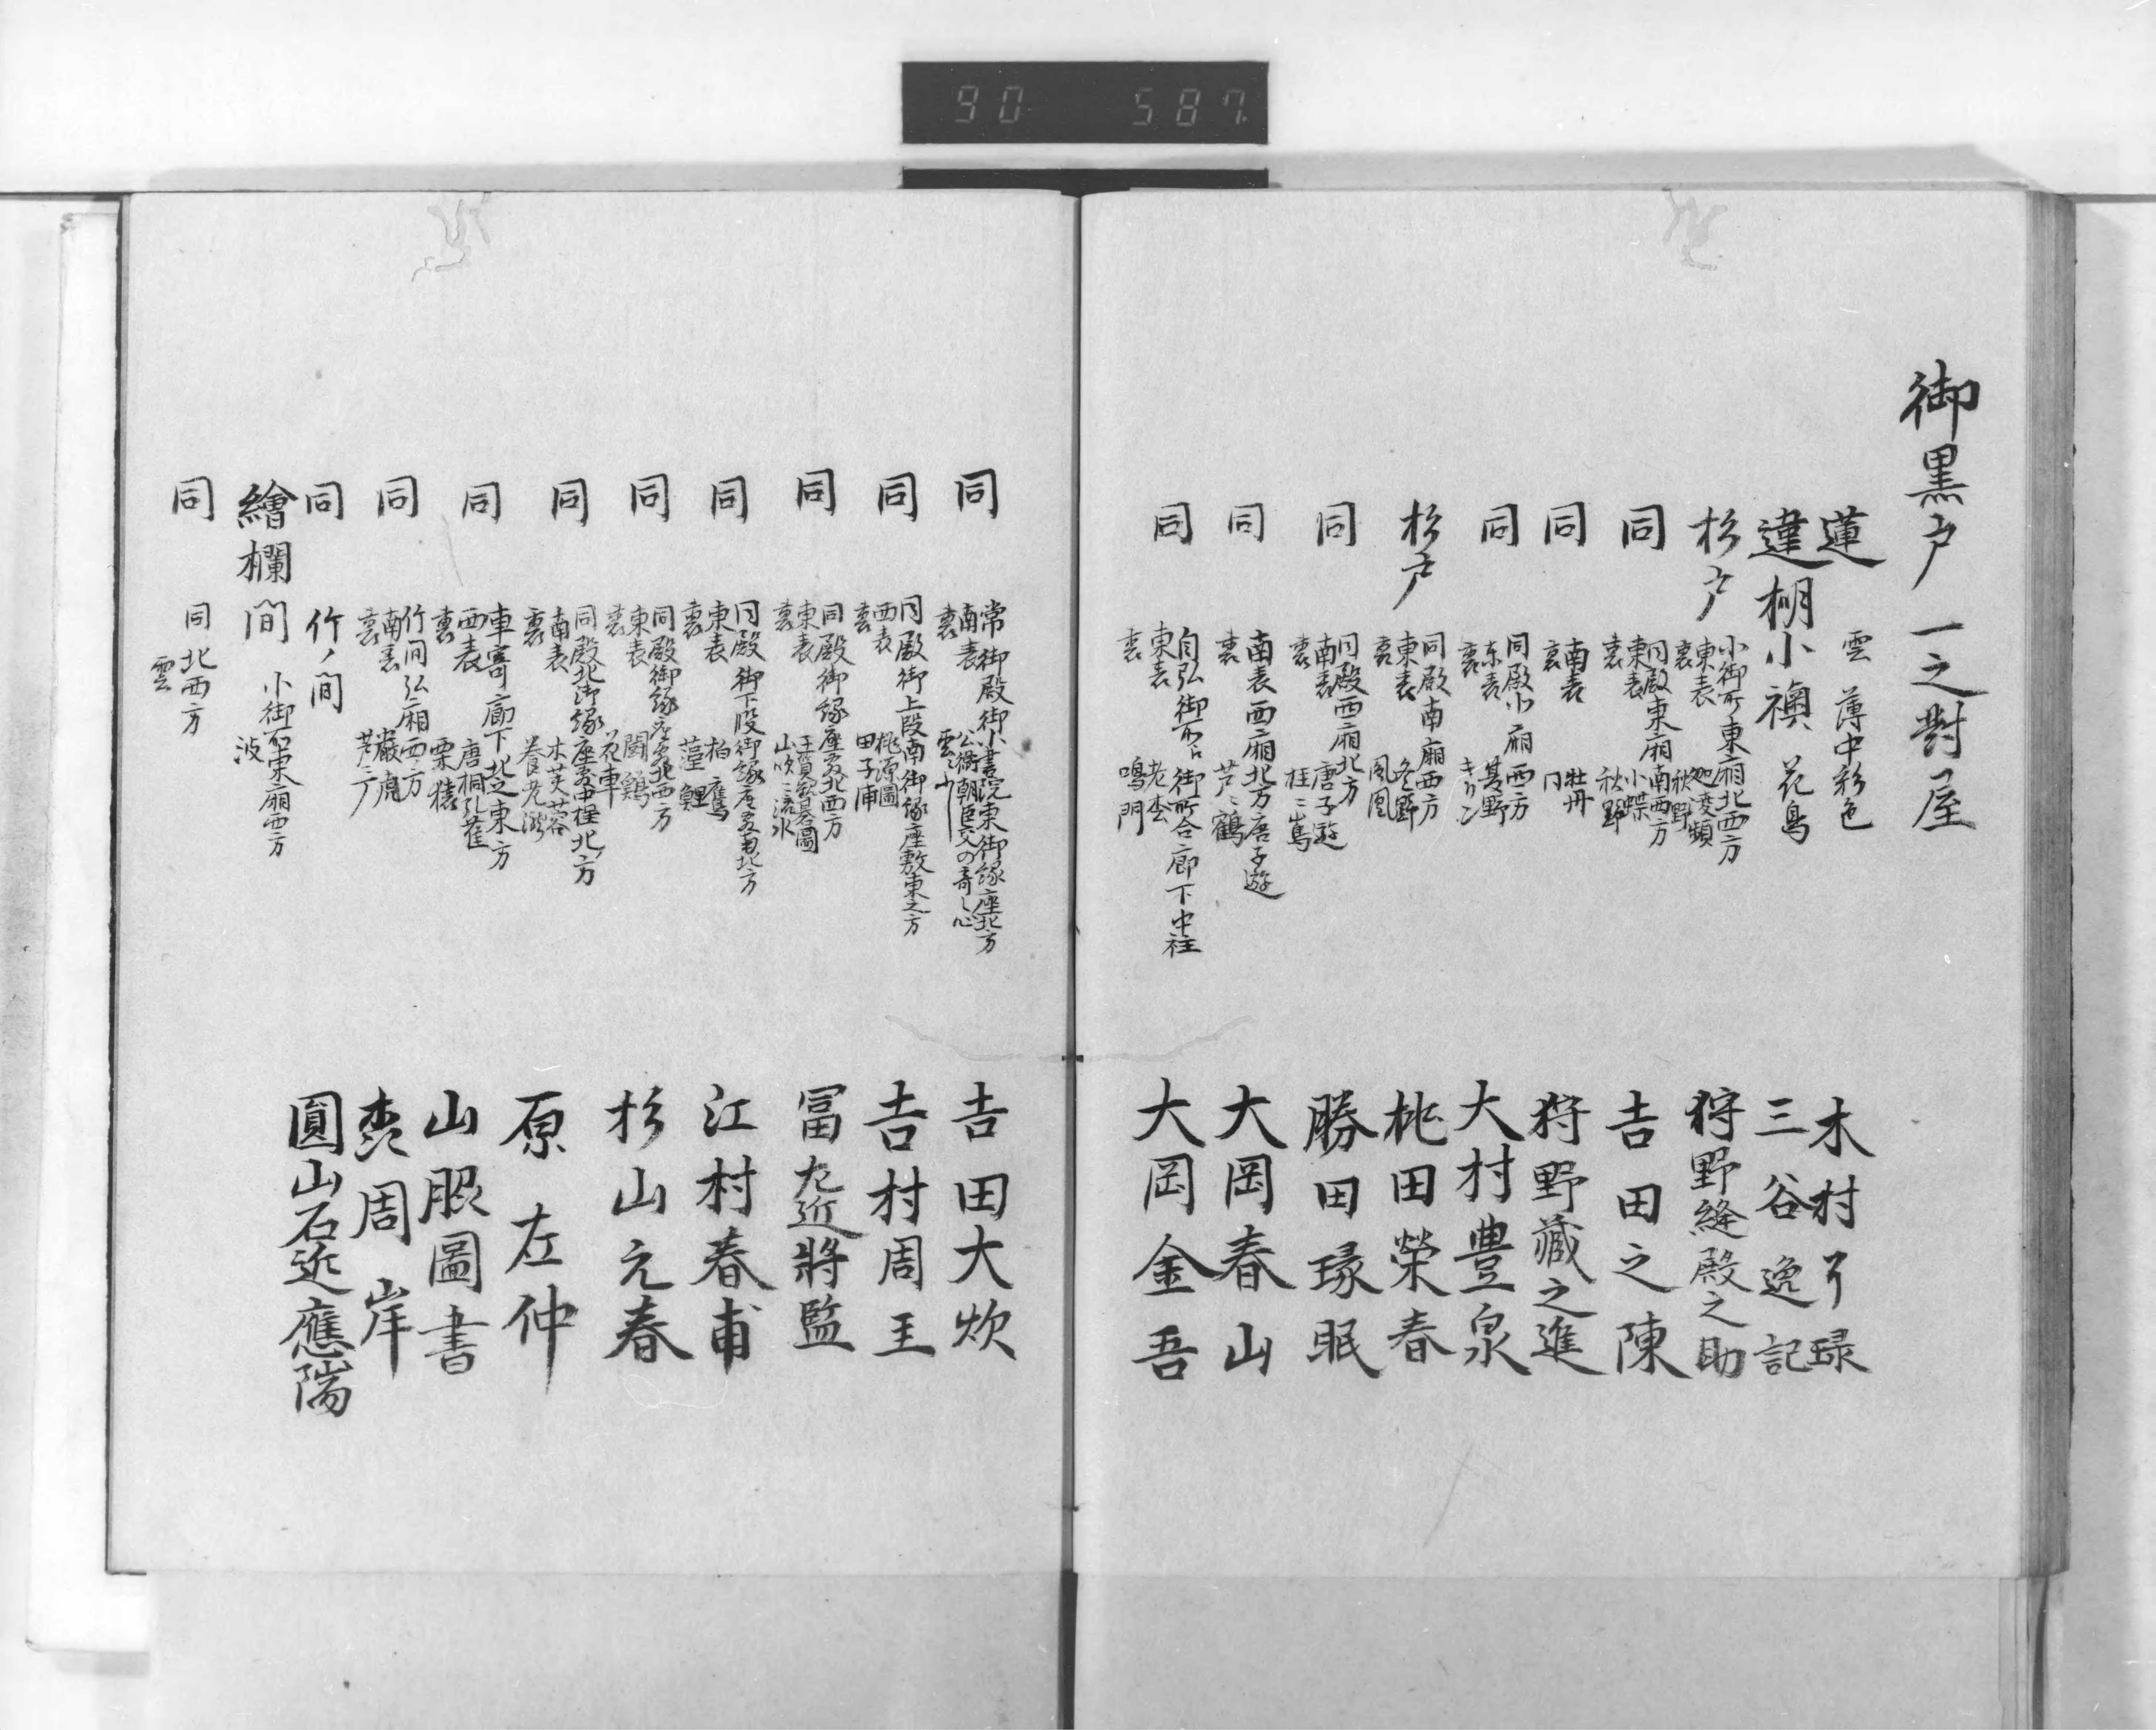 90 587
御黒戸一之對屋
蓮 雲 薄中彩色 木村了琢
違棚小襖 花鳥 三谷逸記
杉戸 小御所東廂北西方 東表 迦陵頻 裏 秋野 狩野縫殿之助
同 同殿東廂南西方 東表 小蝶 裏 秋野 吉田之陳
同 南表 牡丹 裏 同 狩野蔵之進
同 同殿小廂西方 东表 裏 キリン 大村豊泉
杉戸 同殿南廂西方 東表 冬野 裏 鳳凰 桃田榮春
同 同殿西廂北方 南表 唐子遊 裏 勝田琢眠
同 南表 西廂北方唐子遊 裏 芦ニ鶴 大岡春山
同 自弘御所 御所合廊下中柱 東表 老松 裏 鳴門 大岡金吾
同 常御殿御小書院東御縁座北方 南表 公衡朝臣 裏 吉田大炊
同 同殿御上段南御縁座敷東之方 西表 桃源圖 裏 田子浦 吉村周圭
同 同殿御縁座敷北西方 東表 王質囲碁圖 裏 山吹ニ流水 冨左近將監
同 同殿御下段御縁座敷南北方 東表 柏鷹 裏 鯉 江村春甫
同 同殿御縁座敷北西方 東表 花車 裏 闘鶏 杉山元春
同 同殿北御縁座敷中程北方 南表 木芙蓉 裏 養老瀧 原左仲
同 車寄廊下北之東方 西表 唐桐孔雀 裏 栗猿 山脵圖書
同 竹間弘廂西方 南表 巌虎 裏 周岸
同 竹ノ間
繪欄間 小御所東廂西方 波 圓山右近應瑞
同 同北西方 雲